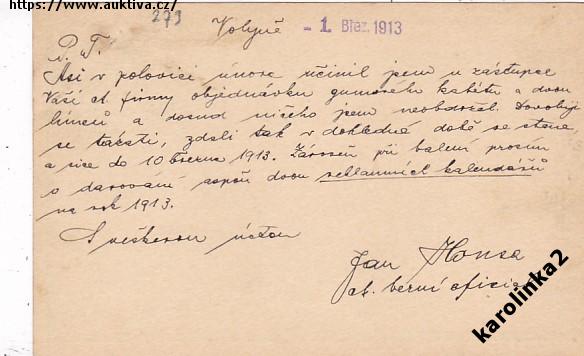 https://www.auktiva.cz/
273
Volyně - 1. Břez. 1913
P. T.
Asi v polovici února učinil jem u zástupce
Vaší ct. firmy objednávku gumového kabátu a dvou
límců a dosud ničeho jsem neobdržel. Dovoluji
se tázati, zdali tak v dohledné době se stane
a sice do 10 března 1913. Zároveň při balení prosím
o darování aspoň dvou reklamních kalendářů
na rok 1913.
S veškerou úctou
Jan Honsa
ct. berní oficiál
karolinka2